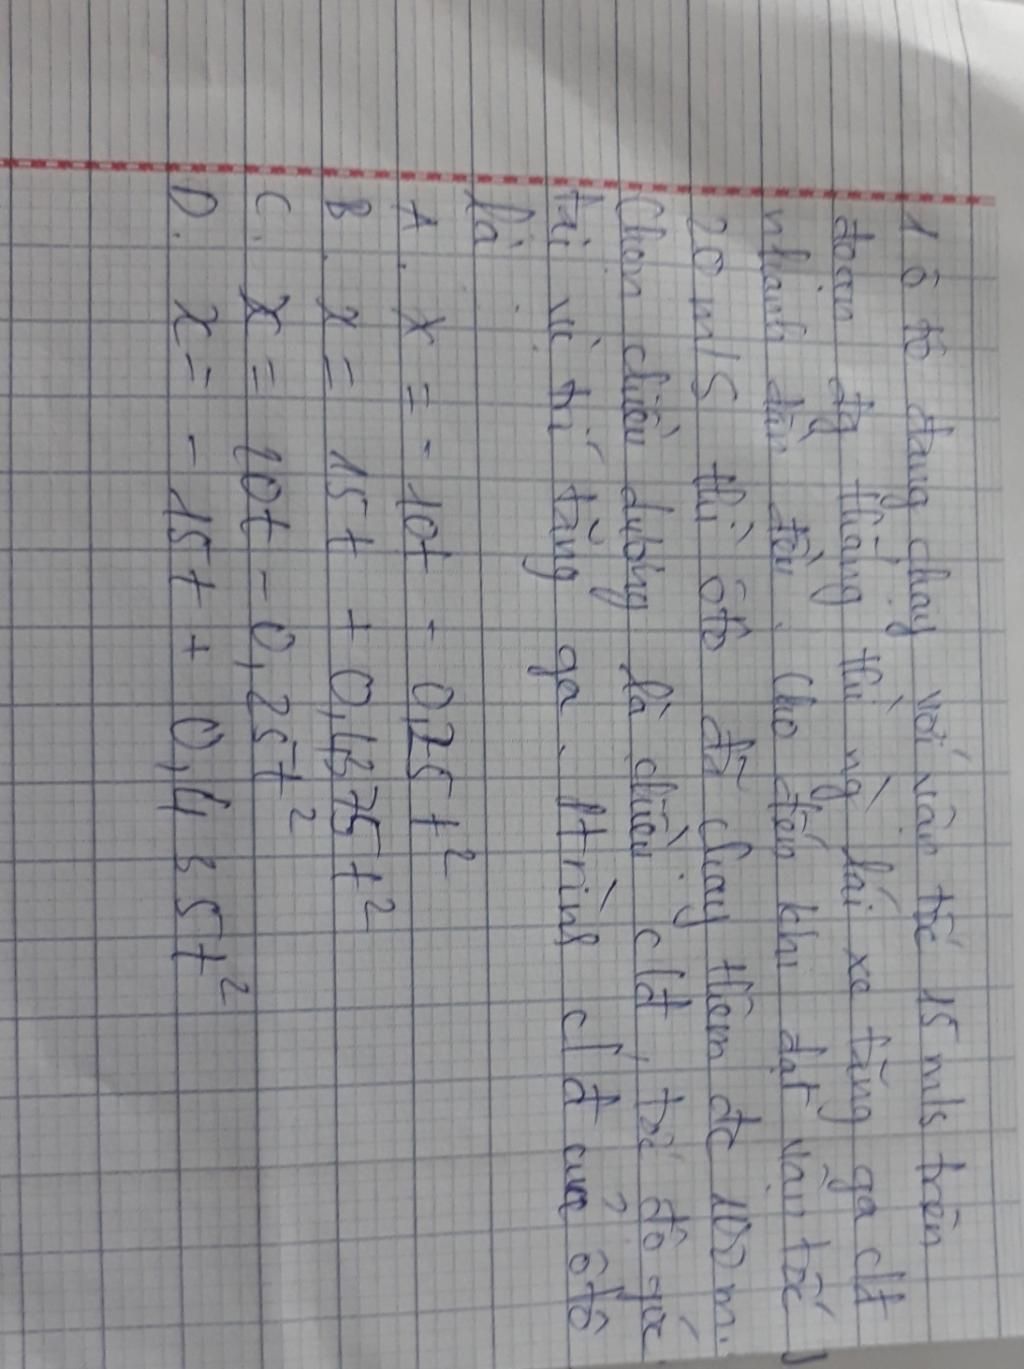 1 ô tô đang chạy với vận tốc 15 m/s trên
đoạn đg thẳng thì ng lái xe tăng ga cđ
nhanh dần đều. Cho đến khi đạt vận tốc
20 m/s thì ôtô đã chạy thêm đc 100 m.
Chọn chiều dương là chiều cđ, tọc độ góc
tại vị trí tăng ga. Ptrình cđ của ôtô
là:
A. x = - 10t - 0,25t²
B. x = 15t + 0,4375t²
C. x = 10t - 0,25t²
D. x = - 15t + 0,4 3 5t²